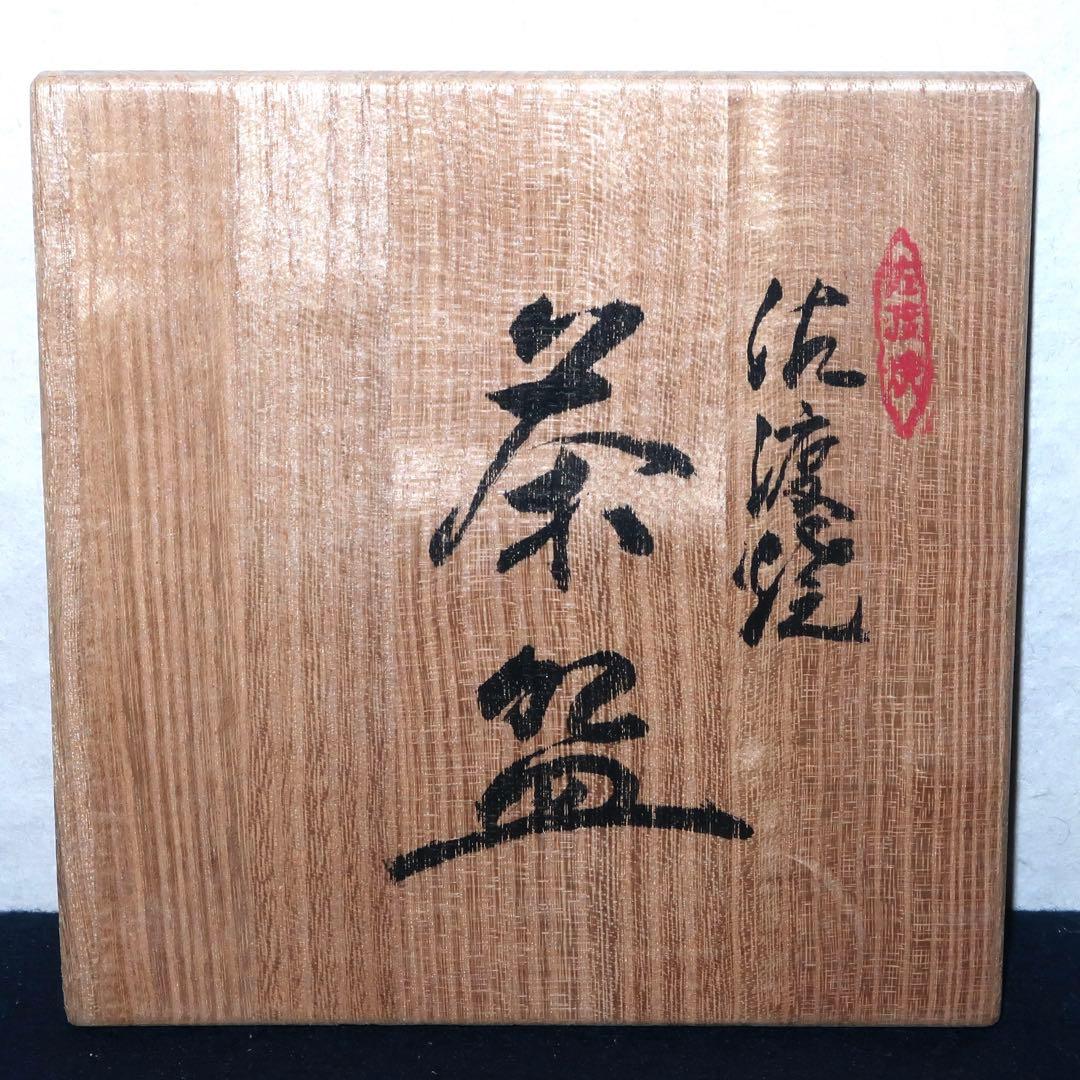 佐渡焼
茶盌